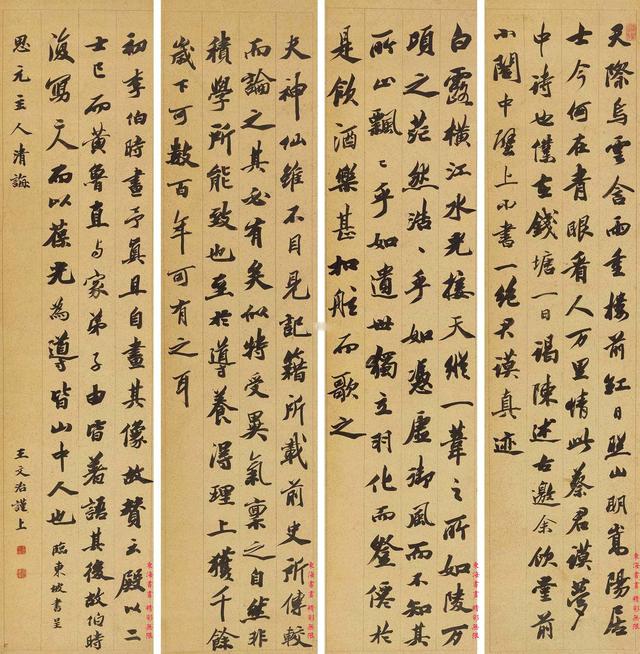 天際烏雲含雨重樓前紅日照山明嵩陽居
士今何在青眼看人万里情此蔡君謨夢
中詩也僕在錢塘一日謁陳述古邀余飲堂前
小閣中壁上小書一絕君謨真迹
白露橫江水光接天縱一葦之所如陵万
頃之茫然浩〻乎如憑虛御風而不知其
所止飄〻乎如遺世獨立羽化而登僊於
是飲酒樂甚扣舷而歌之
夫神仙雖不目見記籍所載前史所傳較
而論之其必有矣似特受異氣稟之自然非
積學所能致也至於導養得理上獲千餘
歲下可數百年可有之耳
初李伯時畫予真且自畫其像故贊云殿以二
士已而黃魯直与家弟子由皆著語其後故伯時
復寫二人而以葆光為導皆山中人也 臨東坡書呈
思元主人清誨
王文治謹上
東海書畫 精彩無限
東海書畫 精彩無限
東海書畫 精彩無限
東海書畫 精彩無限